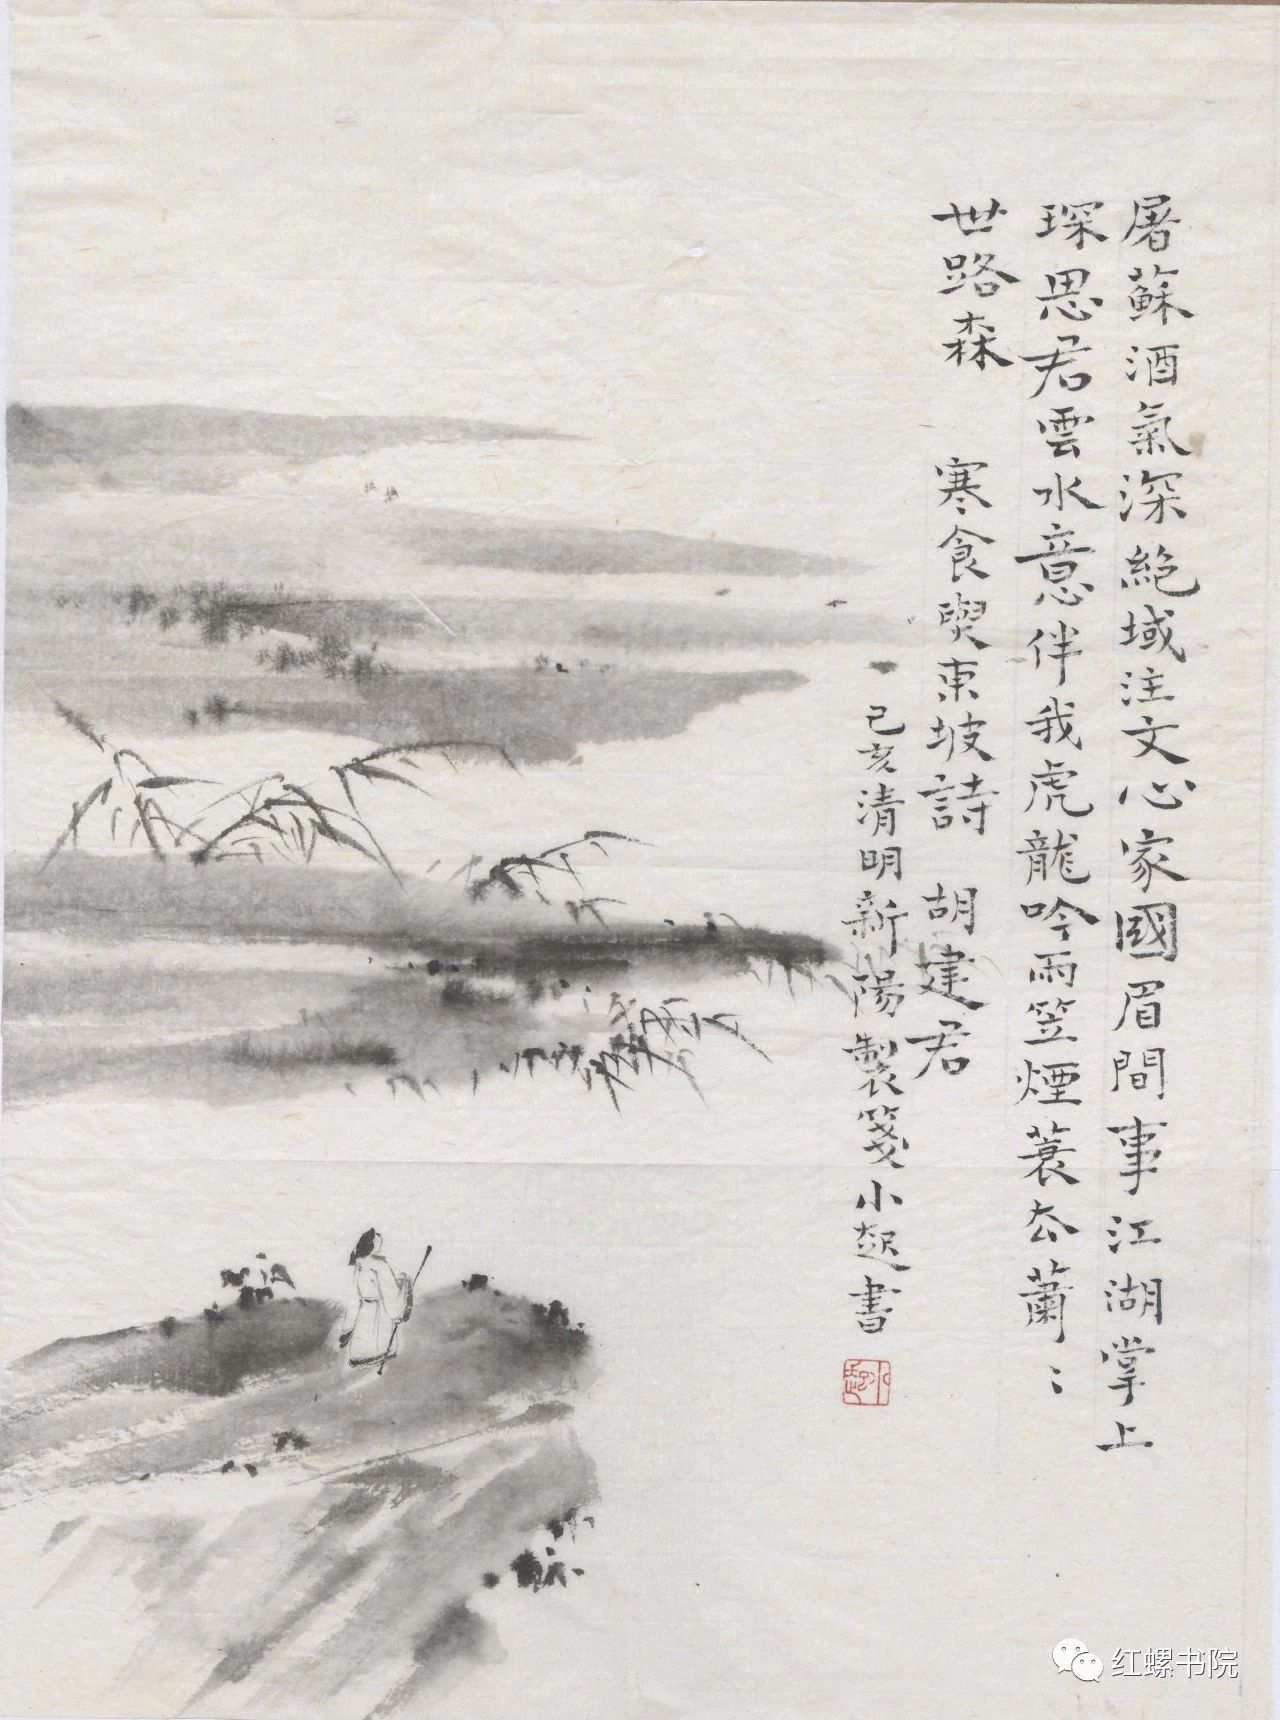 屠蘇酒氣深絕域注文心家國眉間事江湖掌上
琛思君雲水意伴我虎龍吟雨笠煙蓑去蕭〻
世路森　寒食喫東坡詩　胡建君
己亥清明新陽製箋小起書
红螺书院